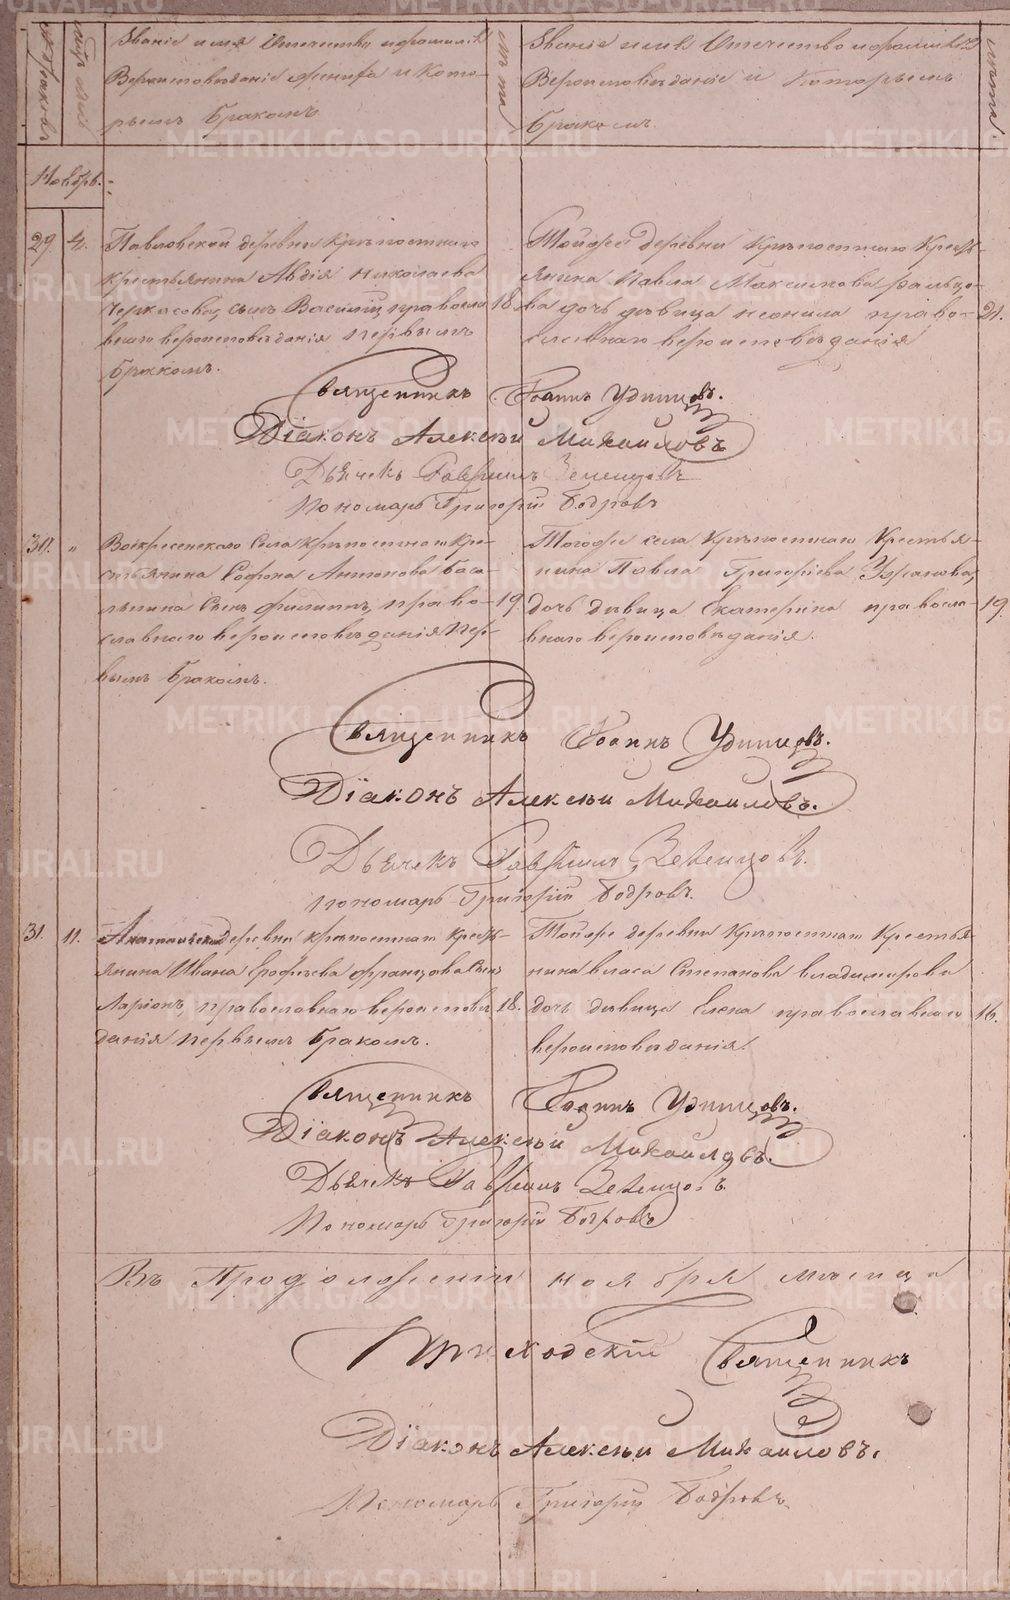 Званіе и имя Отечество и фамилія
Вероисповѣданіе жениха и кото-
рымъ бракомъ
лѣта
Званіе имя Отечество и фамилія
Вероисповѣданіе и Которымъ
бракомъ.
лѣта.
Ноябрь.
29 4. Павловской деревни Крѣпостнаго
крестьянина Авдія Николаева
Черкасова, сынъ Василій, правосла 18.
внаго вероисповѣданія первымъ
бракомъ.
Тойже деревни Крѣпостнаго Кресть-
янина Павла Максимова
ва дочь дѣвица Неонила право- 21.
славнаго вероисповѣданія
Священникъ Іоаннъ Удинцовъ.
Діаконъ Алексѣй Михаиловъ
Дьячекъ Гавріилъ
Пономарь Григорій Бобровъ
30. „ Воскресенскаго Села Крѣпостнаго Кре-
стьянина Софона Антонова
Сынъ Филиппъ, право- 19
славнаго вероисповѣданія пер-
вымъ бракомъ.
Тогоже села Крѣпостнаго Крестья-
нина Павла Григорьева
дочь дѣвица Екатерина правосла- 19
внаго вероисповѣданія.
Священникъ Іоаннъ Удинцовъ.
Діаконъ Алексѣй Михаиловъ.
Дьячекъ Гавріилъ
Пономарь Григорій Бобровъ.
31. 11. деревни крѣпостнаго кресть-
янина Ивана Ерофѣева Францова Сынъ
Ларіонъ, православнаго вероисповѣ 18.
данія первымъ бракомъ.
Тойже деревни Крѣпостнаго Крестья-
нина Власа Степанова Владимирова
дочь дѣвица Елена православнаго 16.
вероисповѣданія.
Священникъ Іоаннъ Удинцовъ.
Діаконъ Алексѣй Михаиловъ.
Дьячекъ Гавріилъ
Пономарь Григорій Бобровъ
Въ Продолженіи ноября мѣсяца
Приходскій Священникъ
Діаконъ Алексѣй Михаиловъ.
Пономарь Григорій Бобровъ.
METRIKI.GASO-URAL.RU